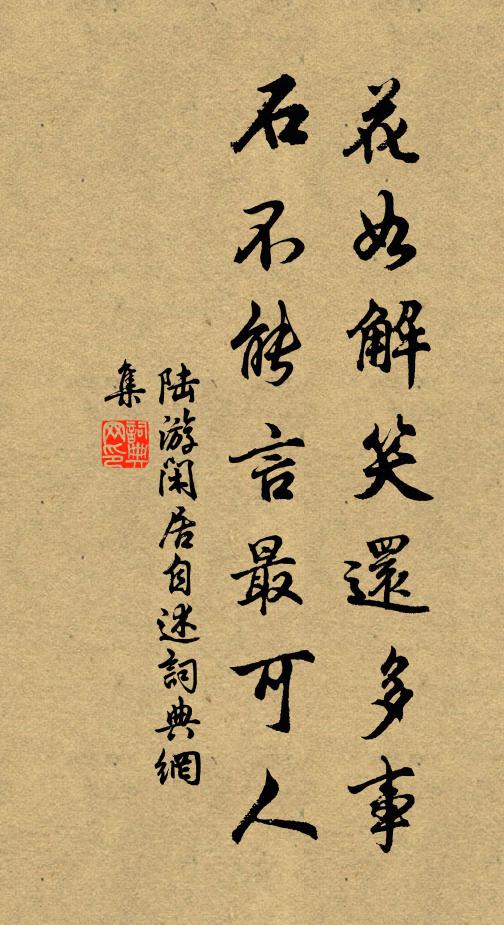 花如解笑還多事
石不能言最可人
陸游閑居自述詞典網
集
詞典
网印